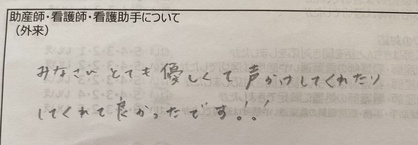 助産師・看護師・看護助手について
（外来）
みなさい とても 優しくて 声かけしてくれたり
してくれて 良かったです！！